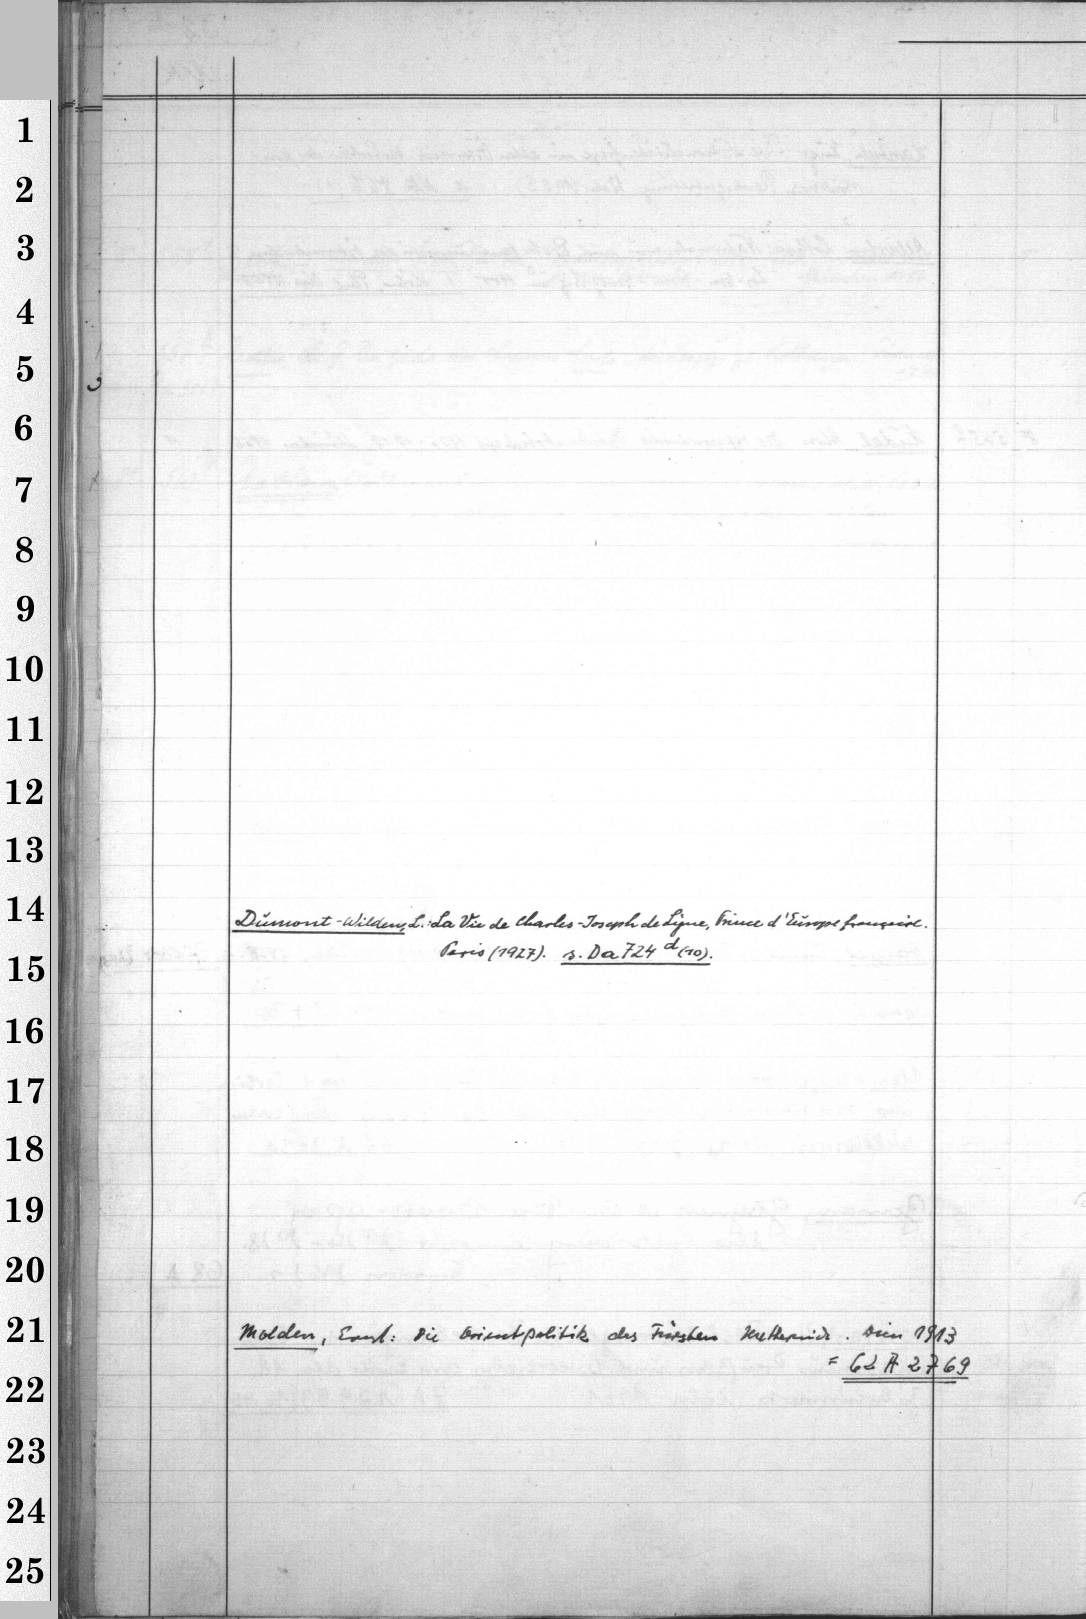 1
2
3
4
5
6
7
8
9
10
11
12
13
14
15
16
17
18
19
20
21
22
23
24
25
Dumont-Wilden, L.: La Vie de Charles-Joseph de Ligne, Prince d'Europe française.
Paris (1927). s. Da 724 d (10).
Molden, Ernst: Die Orientpolitik des Fürsten Metternich. Wien 1913
= 62 A 2769